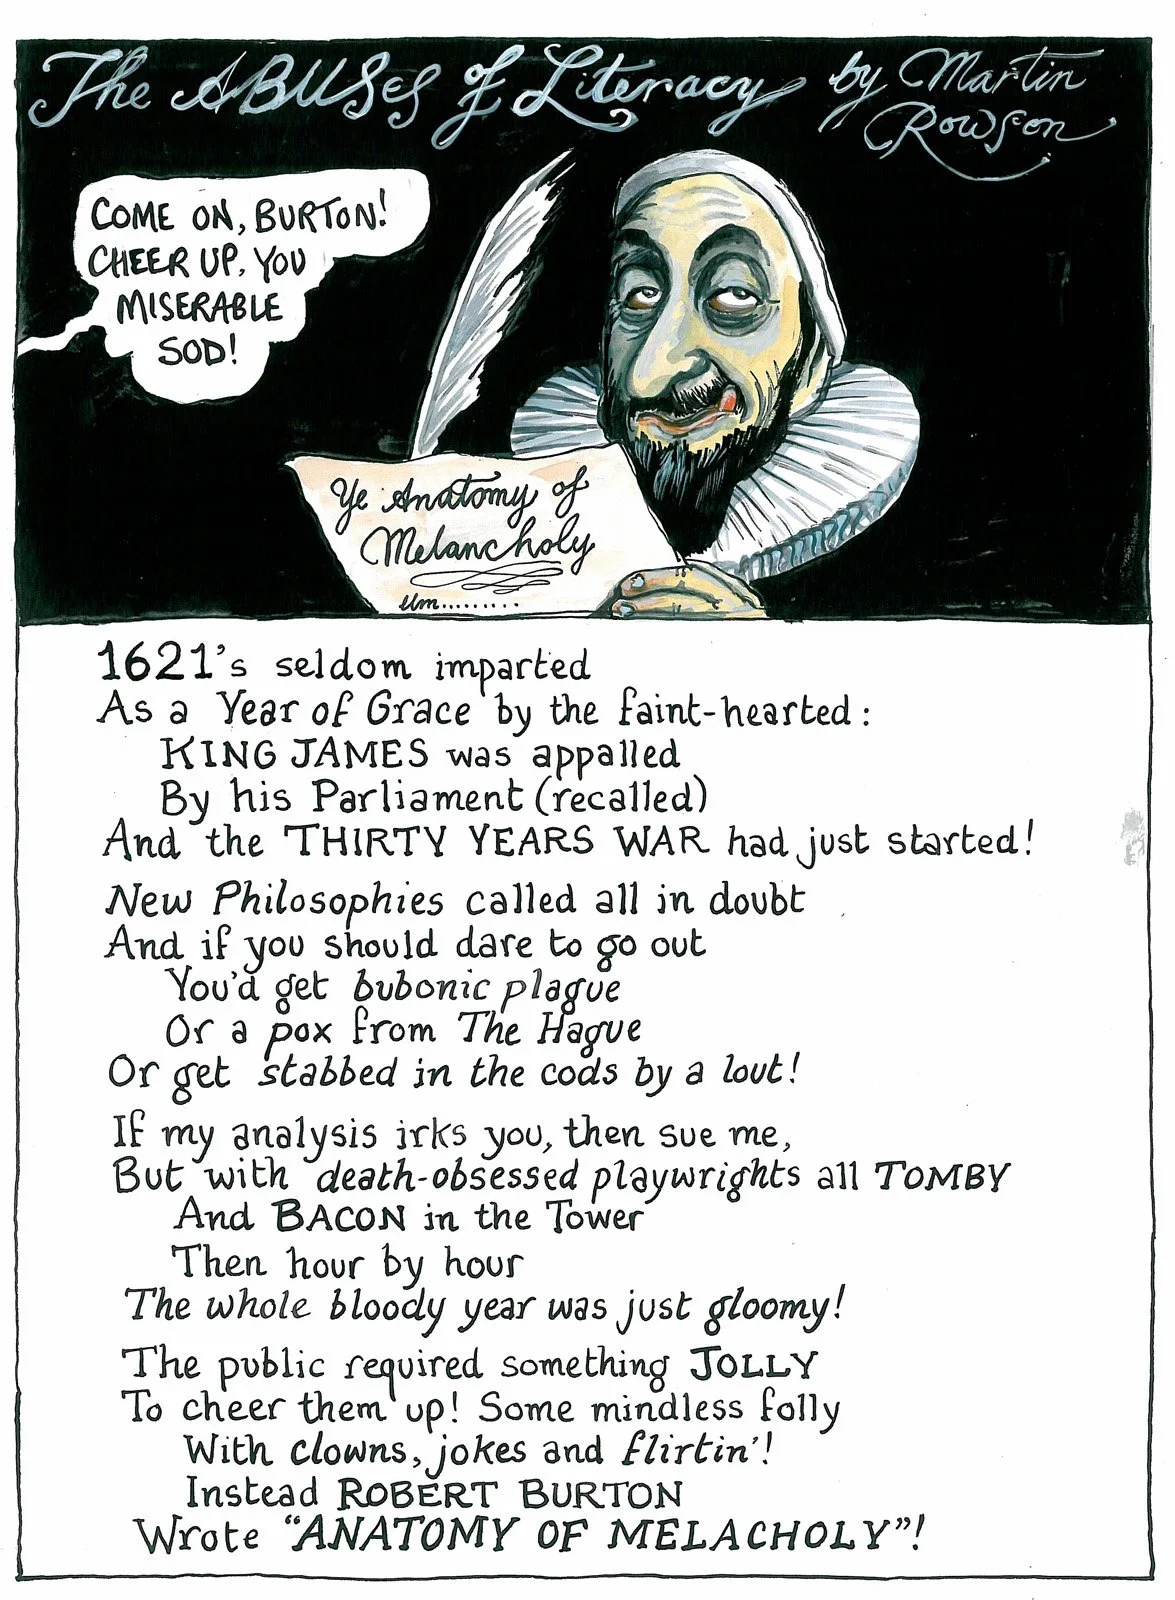 The ABUSes of Literacy by Martin
Rowson
COME ON, BURTON!
CHEER UP, YOU
MISERABLE
SOD!
Ye Anatomy of
Melancholy
um.........
1621's seldom imparted
As a Year of Grace by the faint-hearted:
KING JAMES was appalled
By his Parliament (recalled)
And the THIRTY YEARS WAR had just started!
New Philosophies called all in doubt
And if you should dare to go out
You'd get bubonic plague
Or a pox from The Hague
Or get stabbed in the cods by a lout!
If my analysis irks you, then sue me,
But with death-obsessed playwrights all TOMBY
And BACON in the Tower
Then hour by hour
The whole bloody year was just gloomy!
The public required something JOLLY
To cheer them up! Some mindless folly
With clowns, jokes and flirtin'!
Instead ROBERT BURTON
Wrote "ANATOMY OF MELACHOLY"!